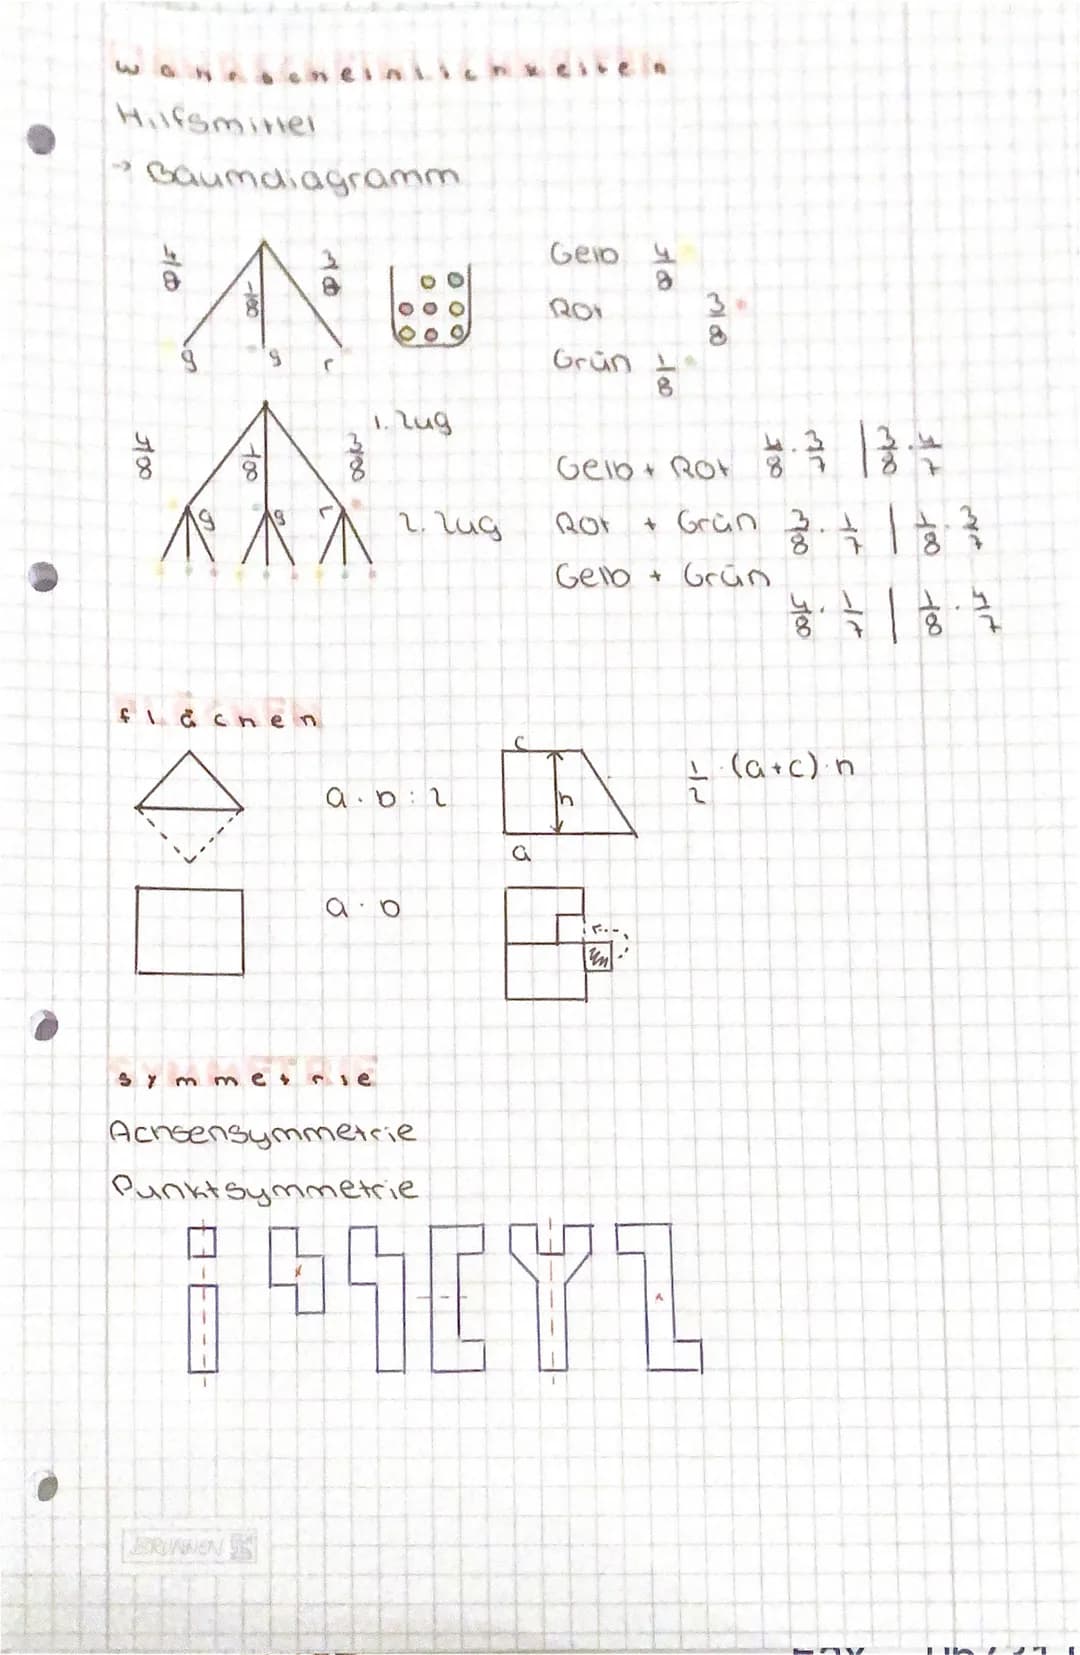 Wahrscheinlichkeiten
Hilfsmittel
→ Baumdiagramm
4/8 1/8 3/8
g g r
Gelb 4/8
Rot 3/8
Grün 1/8
1. Zug
4/8 1/8 3/8
g g r
2. Zug
Gelb + Rot 4/8 · 3/7 | 3/8 · 4/7
Rot + Grün 3/8 · 1/7 | 1/8 · 3/7
Gelb + Grün
4/8 · 1/7 | 1/8 · 4/7
flächen
a · b : 2
c
h
a
1/2 · (a+c) · h
a · b
symmetrie
Achsensymmetrie
Punktsymmetrie
BRUNNEN